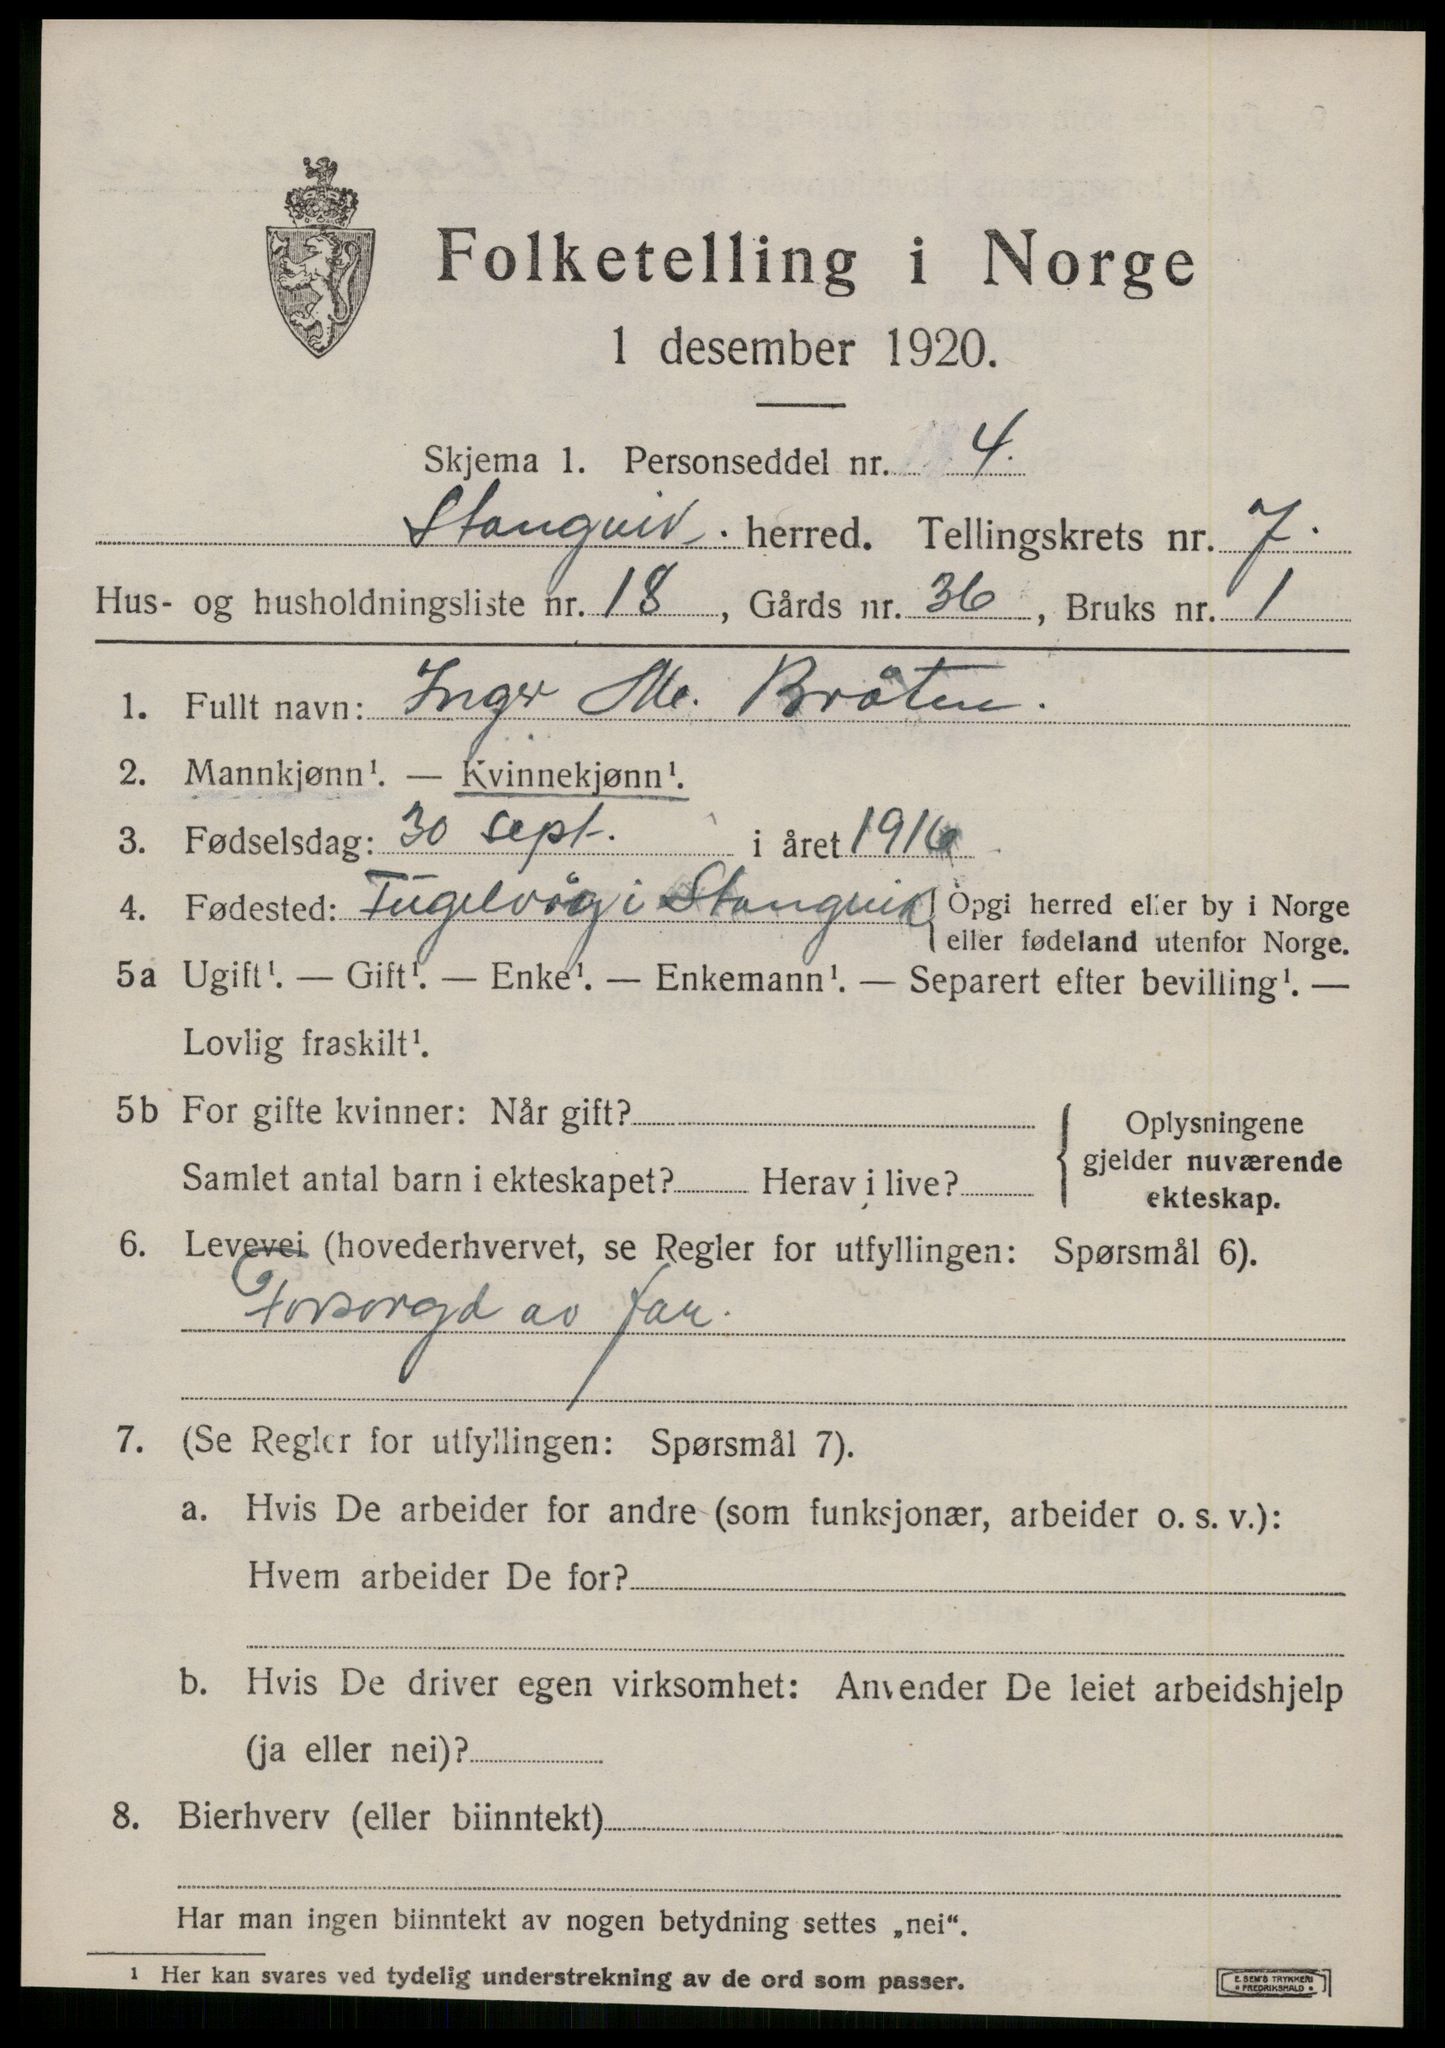 Folketelling i Norge
1 desember 1920.
Skjema 1. Personseddel nr. 4.
Stangvik herred. Tellingskrets nr. 7.
Hus- og husholdningsliste nr. 18, Gårds nr. 36, Bruks nr. 1
1. Fullt navn: Inger M. Bråten.
2. Mannkjønn¹. — Kvinnekjønn¹.
3. Fødselsdag: 30 sept. i året 1916
4. Fødested: Fugelvåg i Stangvik { Opgi herred eller by i Norge
eller fødeland utenfor Norge.
5a Ugift¹. — Gift¹. — Enke¹. — Enkemann¹. — Separert efter bevilling¹. —
Lovlig fraskilt¹.
5b For gifte kvinner: Når gift?
Samlet antal barn i ekteskapet? Herav i live?
{ Oplysningene
gjelder nuværende
ekteskap.
6. Levevei (hovederhvervet, se Regler for utfyllingen: Spørsmål 6).
Forsørgd av far.
7. (Se Regler for utfyllingen: Spørsmål 7).
a. Hvis De arbeider for andre (som funksjonær, arbeider o. s. v.):
Hvem arbeider De for?
b. Hvis De driver egen virksomhet: Anvender De leiet arbeidshjelp
(ja eller nei)?
8. Bierhverv (eller biinntekt)
Har man ingen biinntekt av nogen betydning settes „nei“.
¹ Her kan svares ved tydelig understrekning av de ord som passer.
E. SEM'S TRYKKERI
• FREDRIKSHALD •